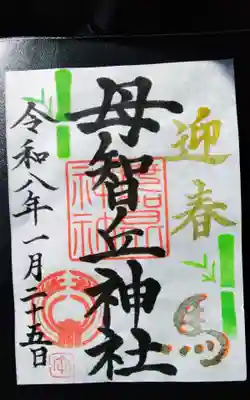 迎春
母智丘神社
令和八年一月二十五日